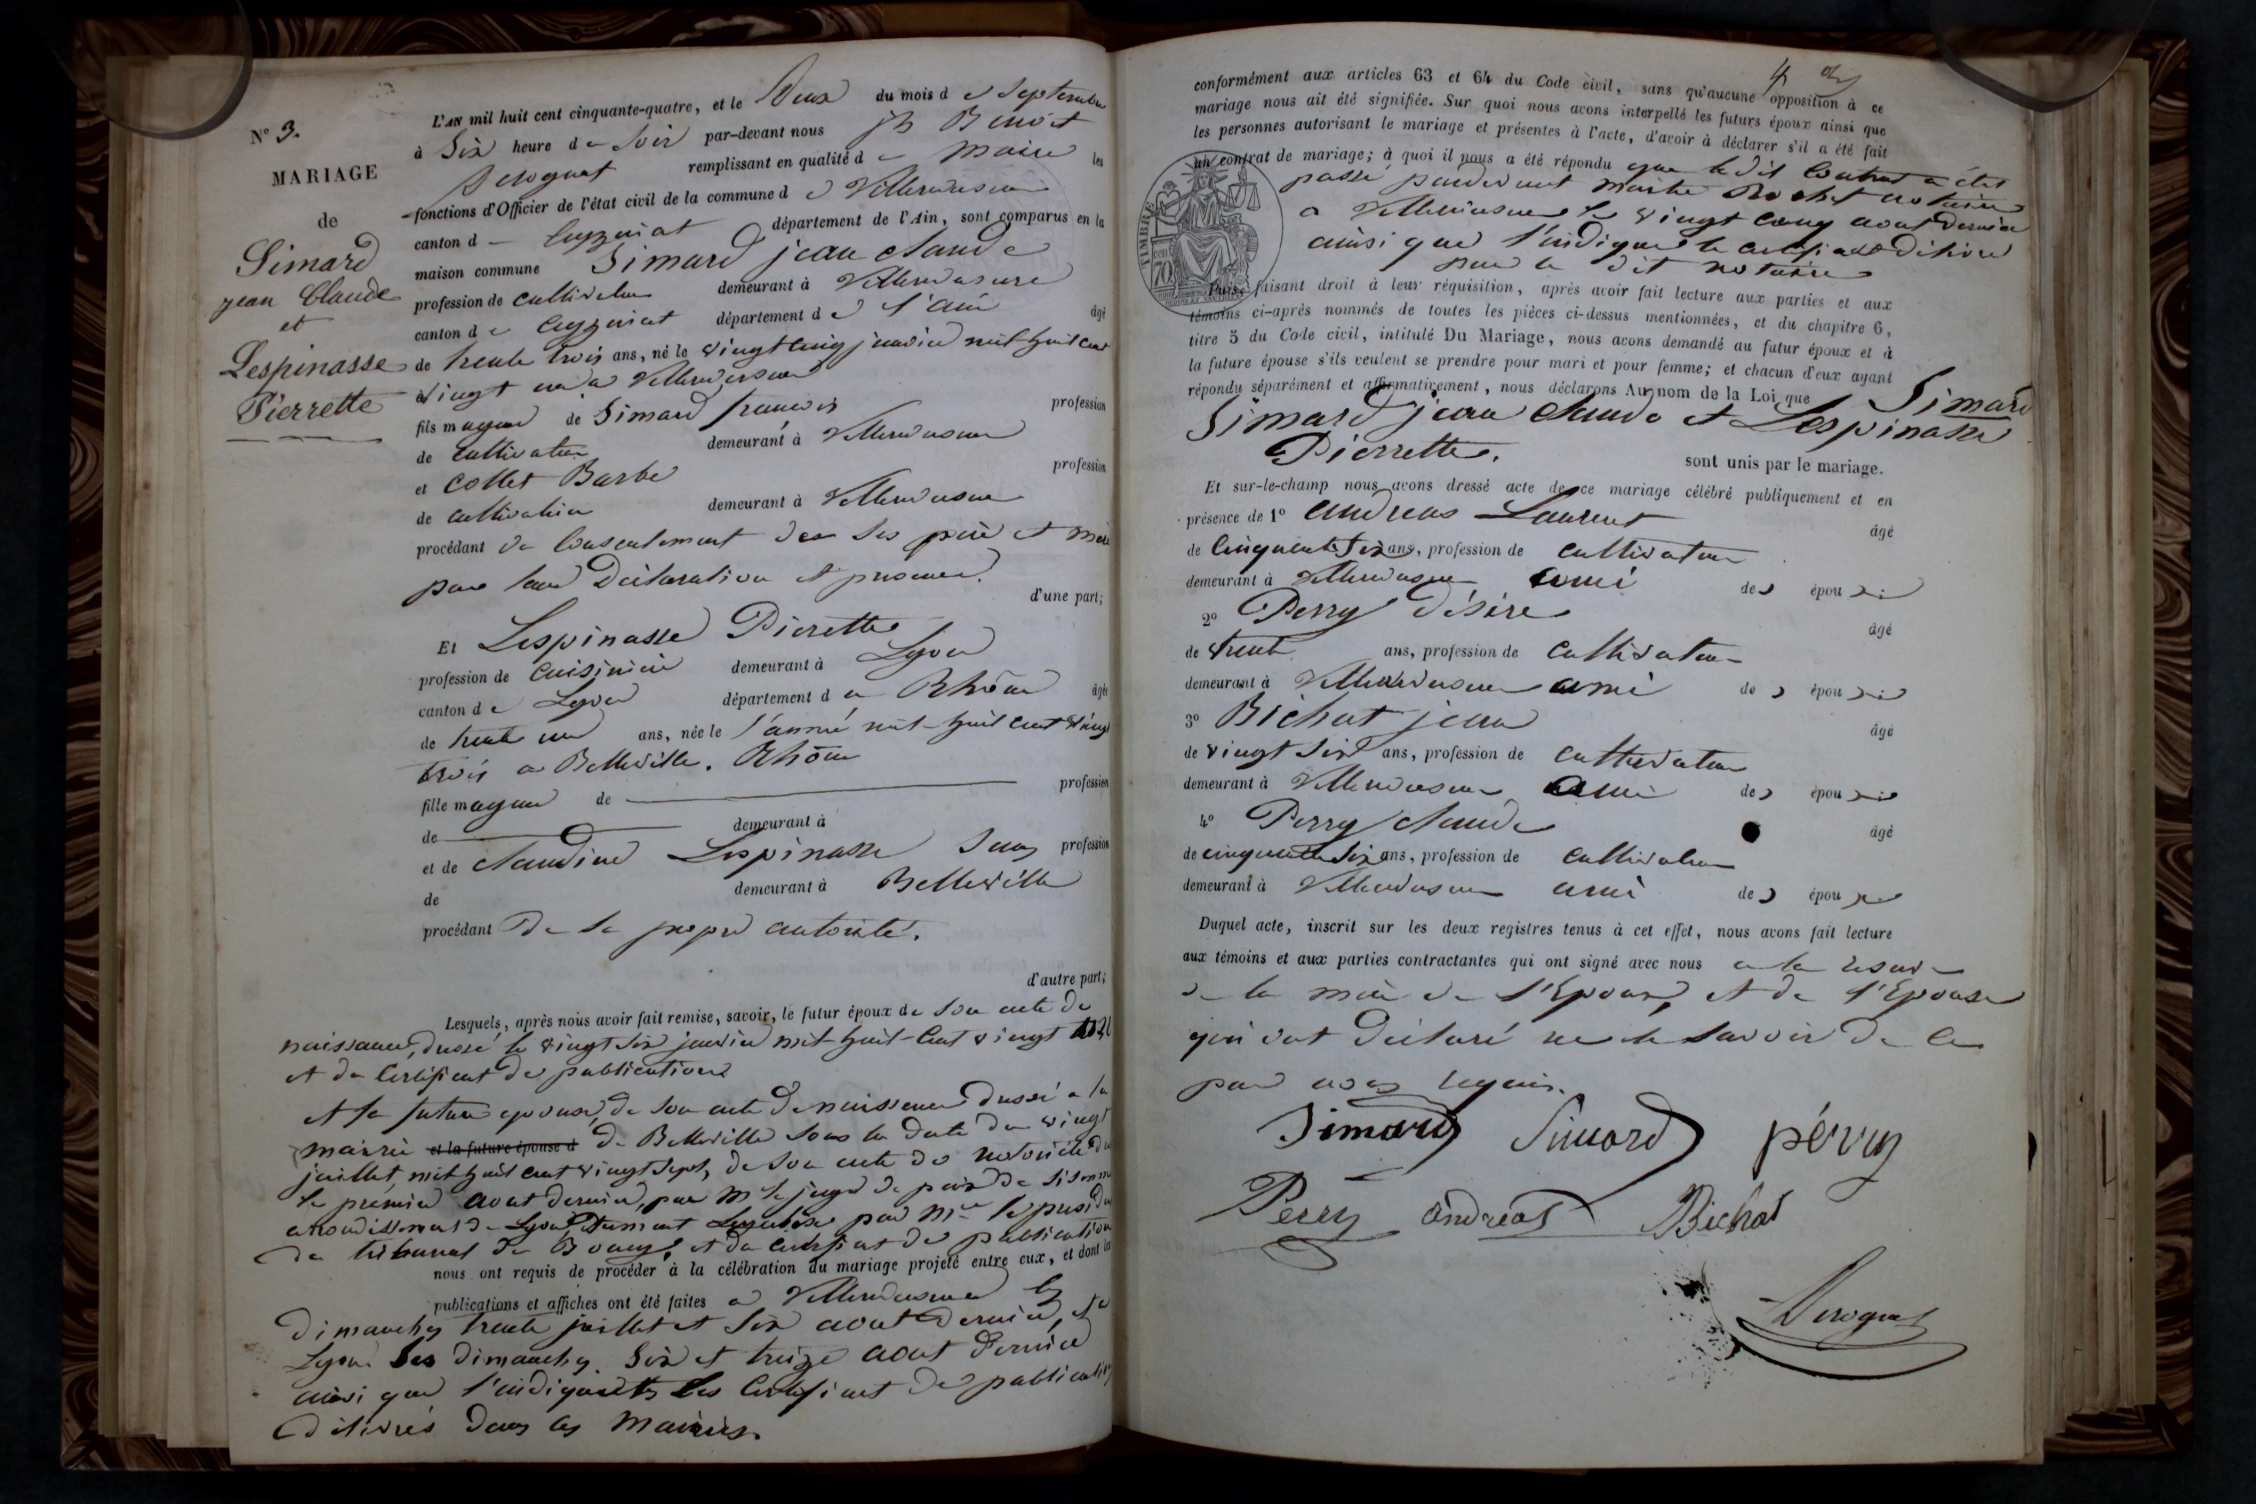 N° 3.
MARIAGE
de
Simard
jean Claude
et
Lespinasse
Pierrette
L'AN mil huit cent cinquante-quatre, et le Deux du mois d e Septembre
à Six heure de Soir par-devant nous jh Benoit
Derognat remplissant en qualité de maire les
fonctions d'Officier de l'état civil de la commune de Villereversure
canton de Ceyzériat département de l'Ain, sont comparus en la
maison commune Simard jean claude
profession de cultivateur demeurant à Villereversure
canton de Ceyzeriat département de l'ain âgé
de trente trois ans, né le vingt cinq janvier mil huit cent
vingt un a Villereversure
fils mageur de Simard francois profession
de cultivateur demeurant à Villereversure
et Collet Barbe profession
de cultivatrice demeurant à Villereversure
procédant du Consentement des ses père et mère
par leur Déclaration et presence.
d'une part;
Et Lespinasse Pierette
profession de cuisinière demeurant à Lyon
canton de Lyon département du Rhône âgée
de trente un ans, née le l'année mil huit cent vingt
trois a Belleville. Rhône
fille mageure de profession
de demeurant à
et de claudine Lespinasse Sans profession
de demeurant à Belleville
procédant De Sa propre autorité.
d'autre part;
Lesquels, après nous avoir fait remise, savoir, le futur époux de Son acte de
naissance, dressé le vingt Six janvier mil huit Cent vingt un
et du Certificat de publications
et la future epouse, de Son acte de naissance Dressé a la
mairie et la future épouse d de Belleville Sous la Date du vingt
juillet, mil huit cent vingt sept, de Son acte de notoriété du
le premier aout dernier, par Mr le juge de paix du
arrondissement de Lyon par Mr le president
du tribunal de Bourg, et du certificat de publication
nous ont requis de procéder à la célébration du mariage projeté entre eux, et dont les
publications et affiches ont été faites a Villereversure les
Dimanches trente juillet et Six aout Dernier, et a
Lyon les Dimanches Six et treize aout Dernier
ainsi que l'indiquent les Certificat de publication
Délivrés dans les Mairies.
conformément aux articles 63 et 64 du Code civil, sans qu'aucune opposition à ce
mariage nous ait été signifiée. Sur quoi nous avons interpellé les futurs époux ainsi que
les personnes autorisant le mariage et présentes à l'acte, d'avoir à déclarer s'il a été fait
un contrat de mariage; à quoi il nous a été répondu que le dit Contrat a été
passé pardevant maitre Rochet notaire
a Villereversure le vingt cinq aout Dernier
ainsi que l'indique le certificat délivré
par le dit notaire
TIMBRE
70
Puis, faisant droit à leur réquisition, après avoir fait lecture aux parties et aux
témoins ci-après nommés de toutes les pièces ci-dessus mentionnées, et du chapitre 6,
titre 5 du Code civil, intitulé Du Mariage, nous avons demandé au futur époux et à
la future épouse s'ils veulent se prendre pour mari et pour femme; et chacun d'eux ayant
répondu séparément et affirmativement, nous déclarons Au nom de la Loi que Simard
Simard jean claude et Lespinasse
Pierrette. sont unis par le mariage.
Et sur-le-champ nous avons dressé acte de ce mariage célébré publiquement et en
présence de 1° andreas Laurent âgé
de Cinquante Six ans, profession de cultivateur
demeurant à Villereversure ami des époux
2° Perry Désire âgé
de trente ans, profession de Cultivateur
demeurant à Villereversure ami des époux
3° Bichat jean âgé
de vingt Six ans, profession de cultivateur
demeurant à Villereversure ami des époux
4° Perry claude âgé
de cinquante Six ans, profession de cultivateur
demeurant à Villereversure ami des époux
Duquel acte, inscrit sur les deux registres tenus à cet effet, nous avons fait lecture
aux témoins et aux parties contractantes qui ont signé avec nous a la reserve
de la mère de l'Epoux, et de l'Epouse
qui ont Déclaré ne le Savoir De ce
par nous requis.
Simard Simard pérry
Péréy andréas Bichat
Derognat